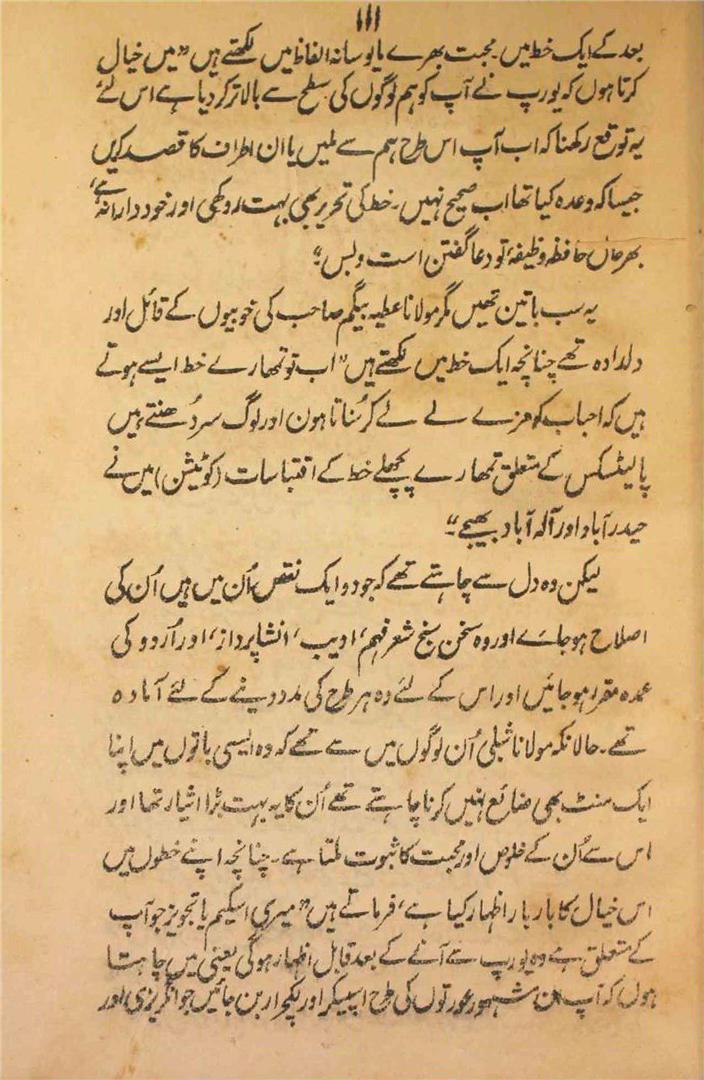 ۱۱۱
بعد کے ایک خط میں محبت بھرے مایوسانہ الفاظ میں لکھتے ہیں ”میں خیال
کرتا ہوں کہ یورپ نے آپ کو ہم لوگوں کی سطح سے بالاتر کر دیا ہے اس لئے
یہ توقع رکھنا کہ اب آپ اس طرح ہم سے ملیں یا ان اطراف کا قصد کریں
جیسا کہ وعدہ کیا تھا اب صحیح نہیں۔ خط کی تحریر بھی بہت روکھی اور خود دارانہ ہے،
بہرحال حافظ وظیفۂ تو دعا گفتن است و بس“
یہ سب باتیں تھیں مگر مولانا عطیہ بیگم صاحب کی خوبیوں کے قائل اور
دلدادہ تھے چنانچہ ایک خط میں لکھتے ہیں ”اب تو تمھارے خط ایسے ہوتے
ہیں کہ احباب کو مزے لے لے کر سُناتا ہون اور لوگ سر دُھنتے ہیں
پالیٹکس کے متعلق تمھارے پچھلے خط کے اقتباسات (کوٹیشن) میں نے
حیدرآباد اور آلہ آباد بھیجے“۔
لیکن وہ دل سے چاہتے تھے کہ جو دو ایک نقص اُن میں ہیں اُن کی
اصلاح ہو جائے اور وہ سخن سنج شعر فہم، ادیب، انشا پرداز، اور اُردو کی
عمدہ مقرر ہو جائیں اور اس کے لئے وہ ہر طرح کی مدد دینے کے لئے آمادہ
تھے۔ حالانکہ مولانا شبلی اُن لوگوں میں سے تھے کہ وہ ایسی باتوں میں اپنا
ایک منٹ بھی ضائع نہیں کرنا چاہتے تھے اُن کا یہ بہت بڑا ایثار تھا اور
اس سے اُن کے خلوص اور محبت کا ثبوت ملتا ہے۔ چنانچہ اپنے خطوں میں
اس خیال کا بار بار اظہار کیا ہے، فرماتے ہیں ”میری اسکیم یا تجویز جو آپ
کے متعلق ہے وہ یورپ سے آنے کے بعد قابل اظہار ہوگی یعنی میں چاہتا
ہوں کہ آپ ان مشہور عورتوں کی طرح اسپیکر اور لکچرار بن جائیں جو انگریزی اور